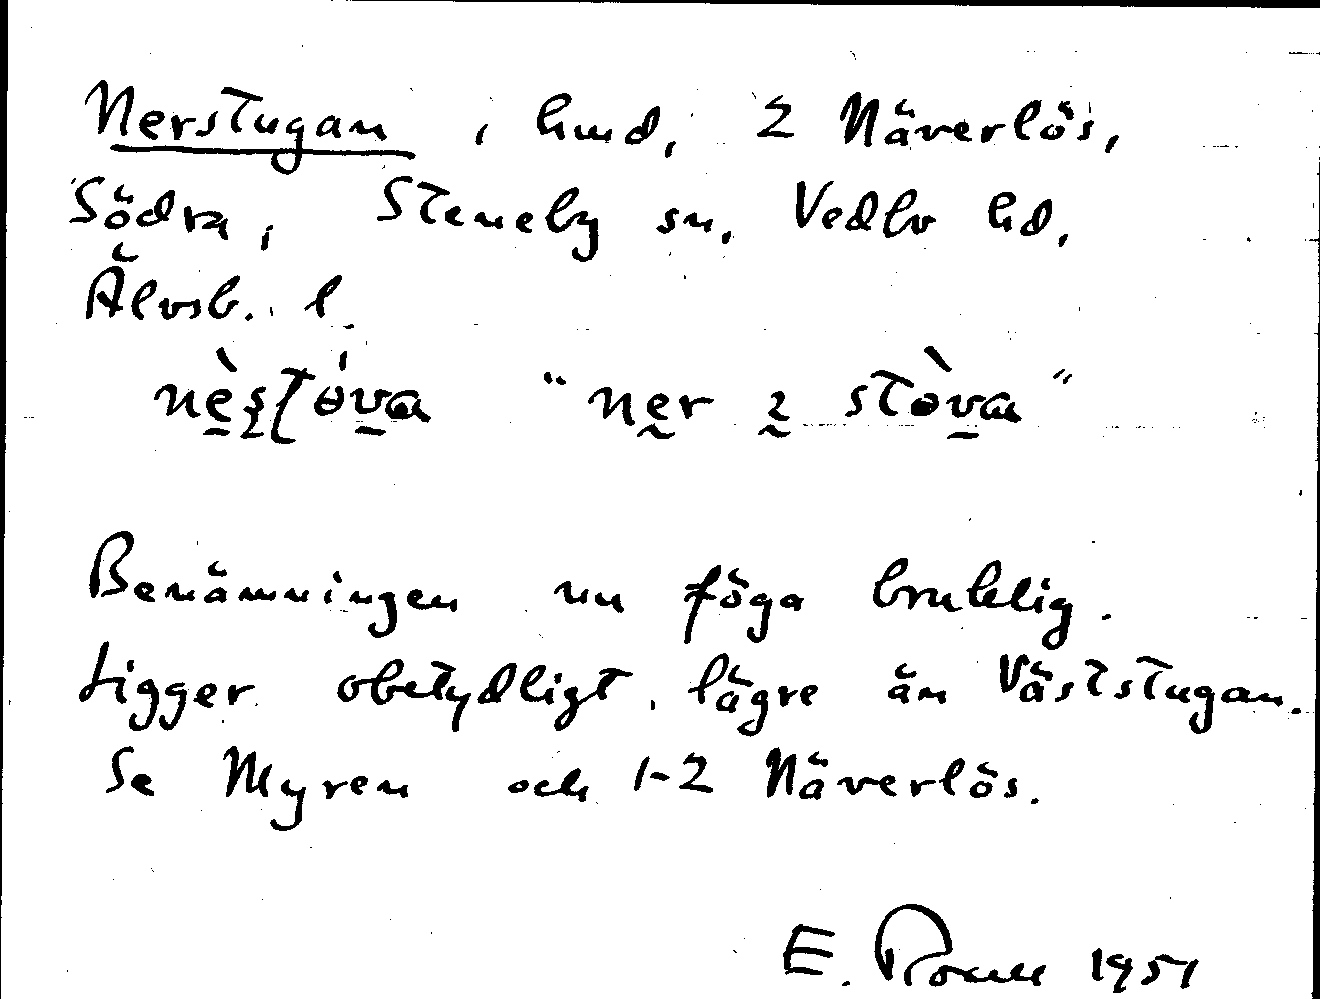 Nerstugan, hmd, 2 Näverlös,
Södra, Steneby sn, Vedbo hd,
Älvsb. l.
"ner i stòva"
Benämningen nu föga bruklig.
Ligger obetydligt lägre än Väststugan.
Se Myren och 1-2 Näverlös.
E. 1951